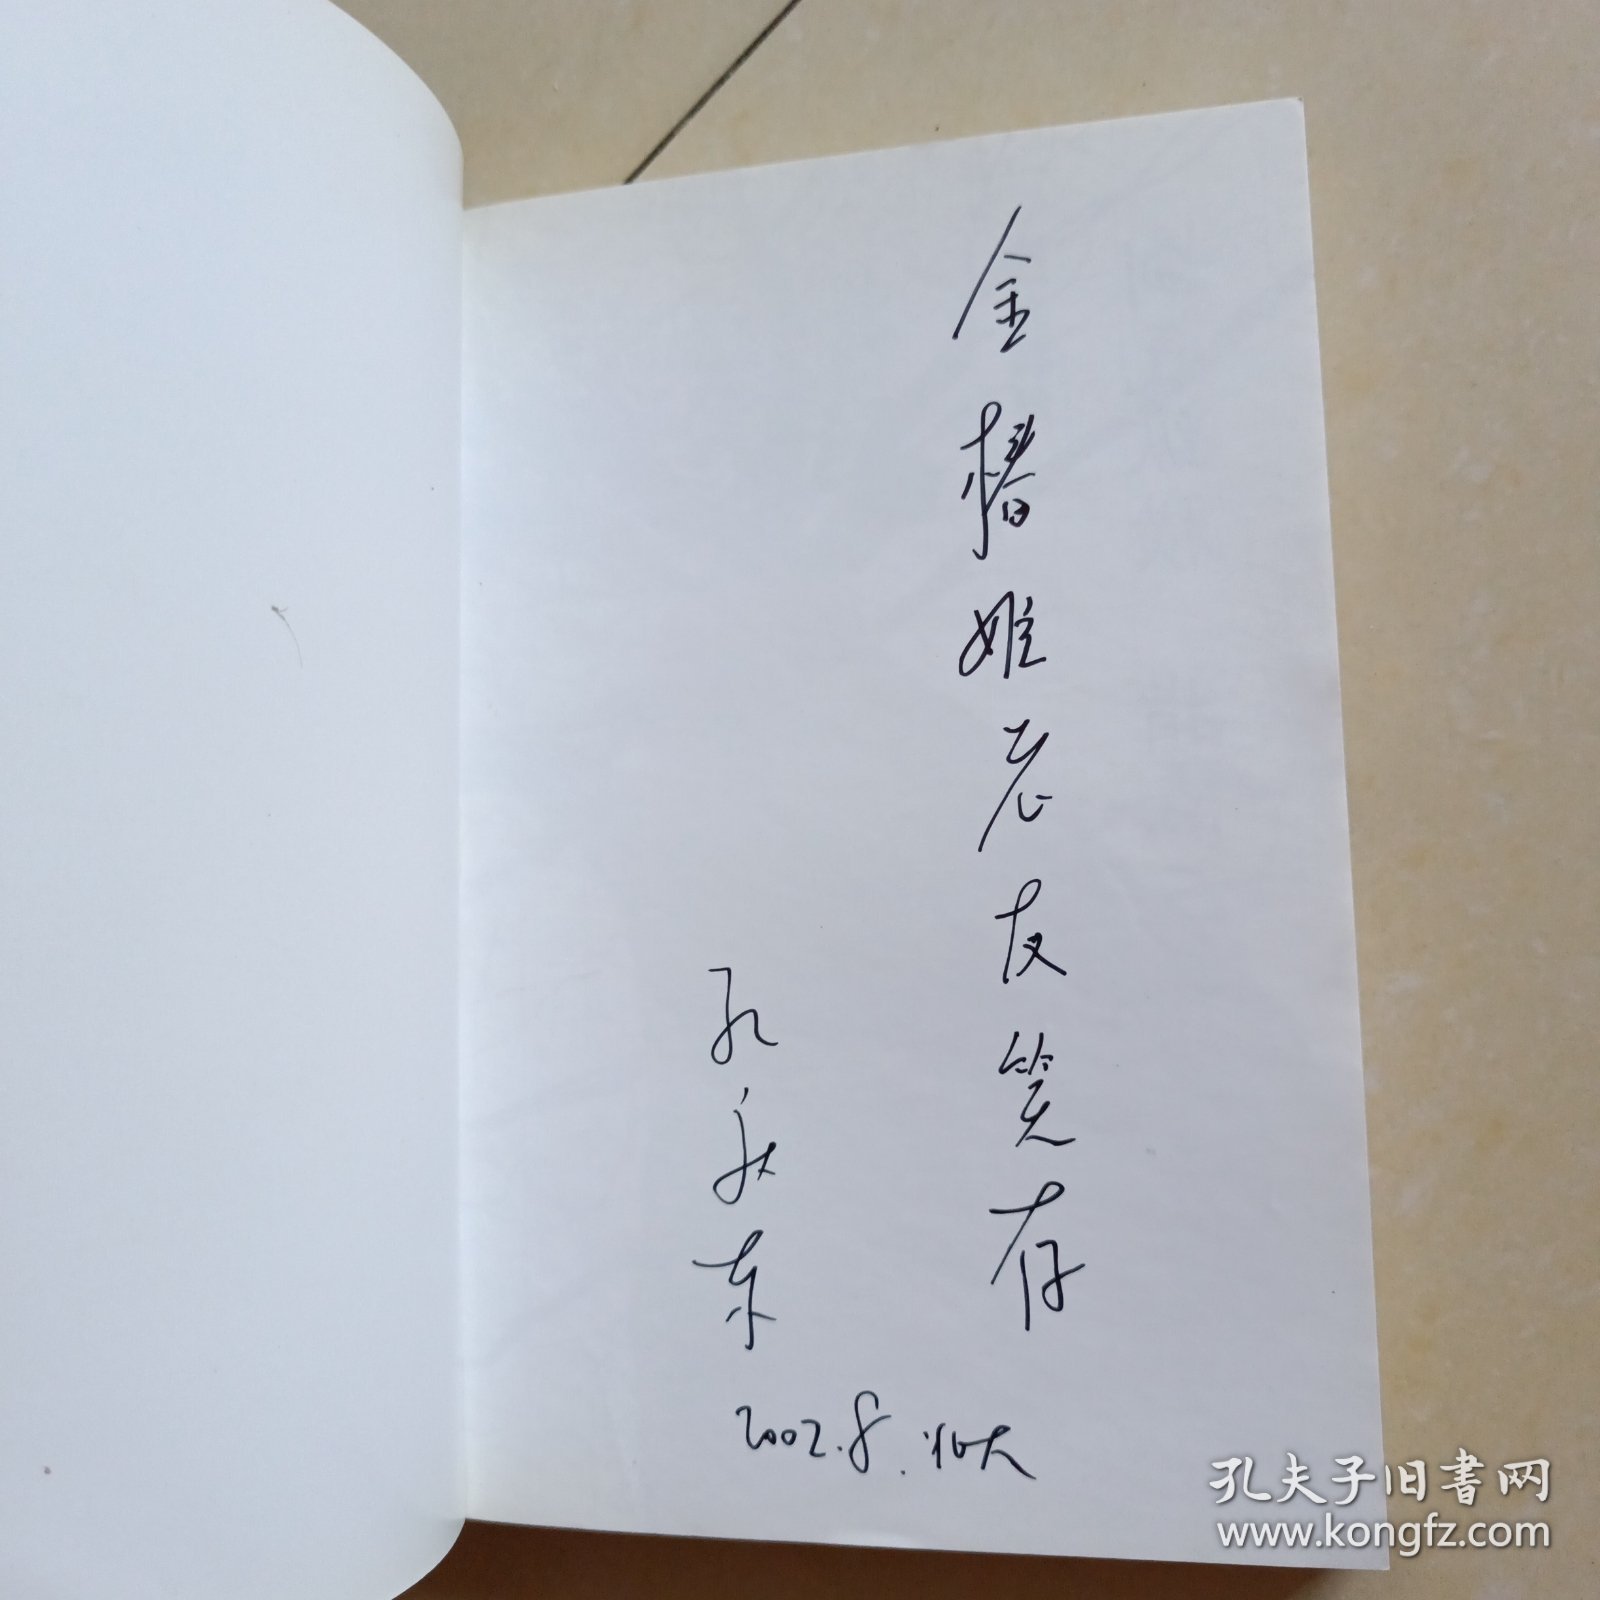 金椿姬老友笑存
孔庆东
2002.8.北大
孔夫子旧书网
www.kongfz.com